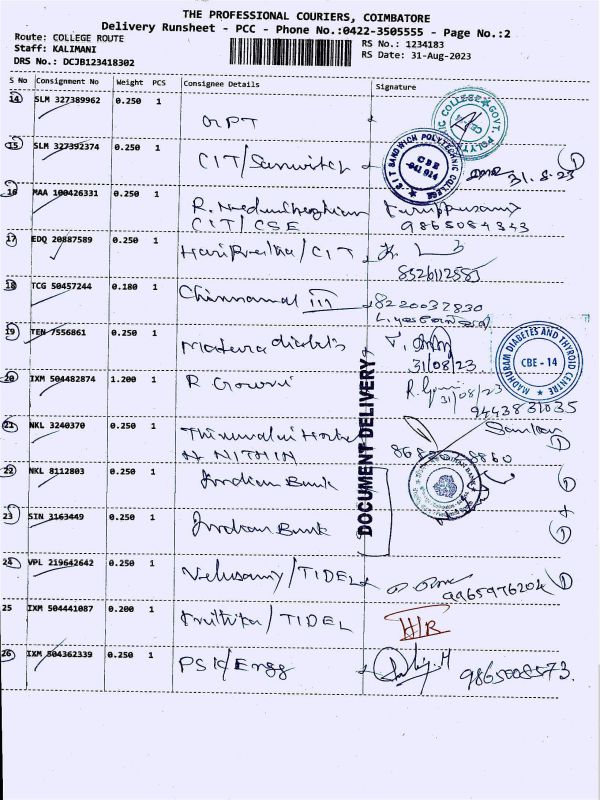 THE PROFESSIONAL COURIERS, COIMBATORE
Delivery Runsheet - PCC - Phone No.:0422-3505555 - Page No.:2
Route: COLLEGE ROUTE
Staff: KALIMANI
DRS No.: DCJB123418302
RS No.: 1234183
RS Date: 31-Aug-2023
S No Consignment No Weight PCS Consignee Details Signature
14 SLM 327389962 0.250 1 GPT
COLLEGE GOVT. POLYTECHNIC
15 SLM 327392374 0.250 1 CIT/Sanwitch 31.8.23
CIT SANDWICH POLYTECHNIC COLLEGE
CBE
641 014
16 MAA 100426331 0.250 1 R. Nedunchezhian Karuppusamy
CIT/CSE 9865084343
17 EDQ 20887589 0.250 1 /CIT
8526112583
18 TCG 50457244 0.180 1 Chinnamal III 8220032830
19 TEN 7556861 0.250 1
31/08/23
MADHURAM DIABETES AND THYROID CENTRE
CBE - 14
20 IXM 504482874 1.200 1 R Gowri 31/08/23
9443831035
21 NKL 3240370 0.250 1 Thirumalai
N NITHIN
22 NKL 8112803 0.250 1 Indian Bank
DOCUMENT DELIVERY
23 SIN 3163449 0.250 1 Indian Bank
24 VPL 219642642 0.250 1 Velusamy/TIDEL 9965976204
25 IXM 504441087 0.200 1 Kruthika/TIDEL H/R
26 IXM 504362339 0.250 1 PSK/Engg 9865008573.